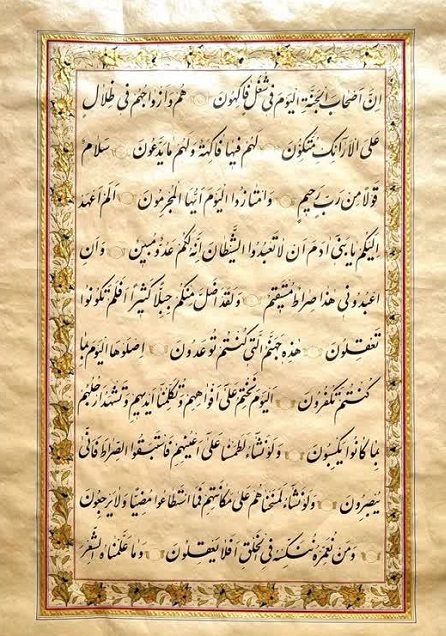 ان اصحاب الجنة اليوم فی شغل فاکهون هم وازواجهم فی ظلال
علی الارائک متکؤن لهم فیها فاکهة ولهم مایدعون سلام
قولا من رب رحیم وامتازوا الیوم ایها المجرمون الم اعهد
الیکم یا بنی ادم ان لاتعبدوا الشیطان انه لکم عدو مبین وان
اعبدونی هذا صراط مستقیم ولقد اضل منکم جبلا کثیرا افلم تکونوا
تعقلون هذه جهنم التی کنتم توعدون اصلوها الیوم بما
کنتم تکفرون الیوم نختم علی افواههم وتکلمنا ایدیهم وتشهد ارجلهم
بما کانوا یکسبون ولو نشاء لطمسنا علی اعینهم فاستبقوا الصراط فانی
یبصرون ولو نشاء لمسخناهم علی مکانتهم فما استطاعوا مضیا ولا یرجعون
ومن نعمره ننکسه فی الخلق افلا یعقلون وما علمناه الشعر